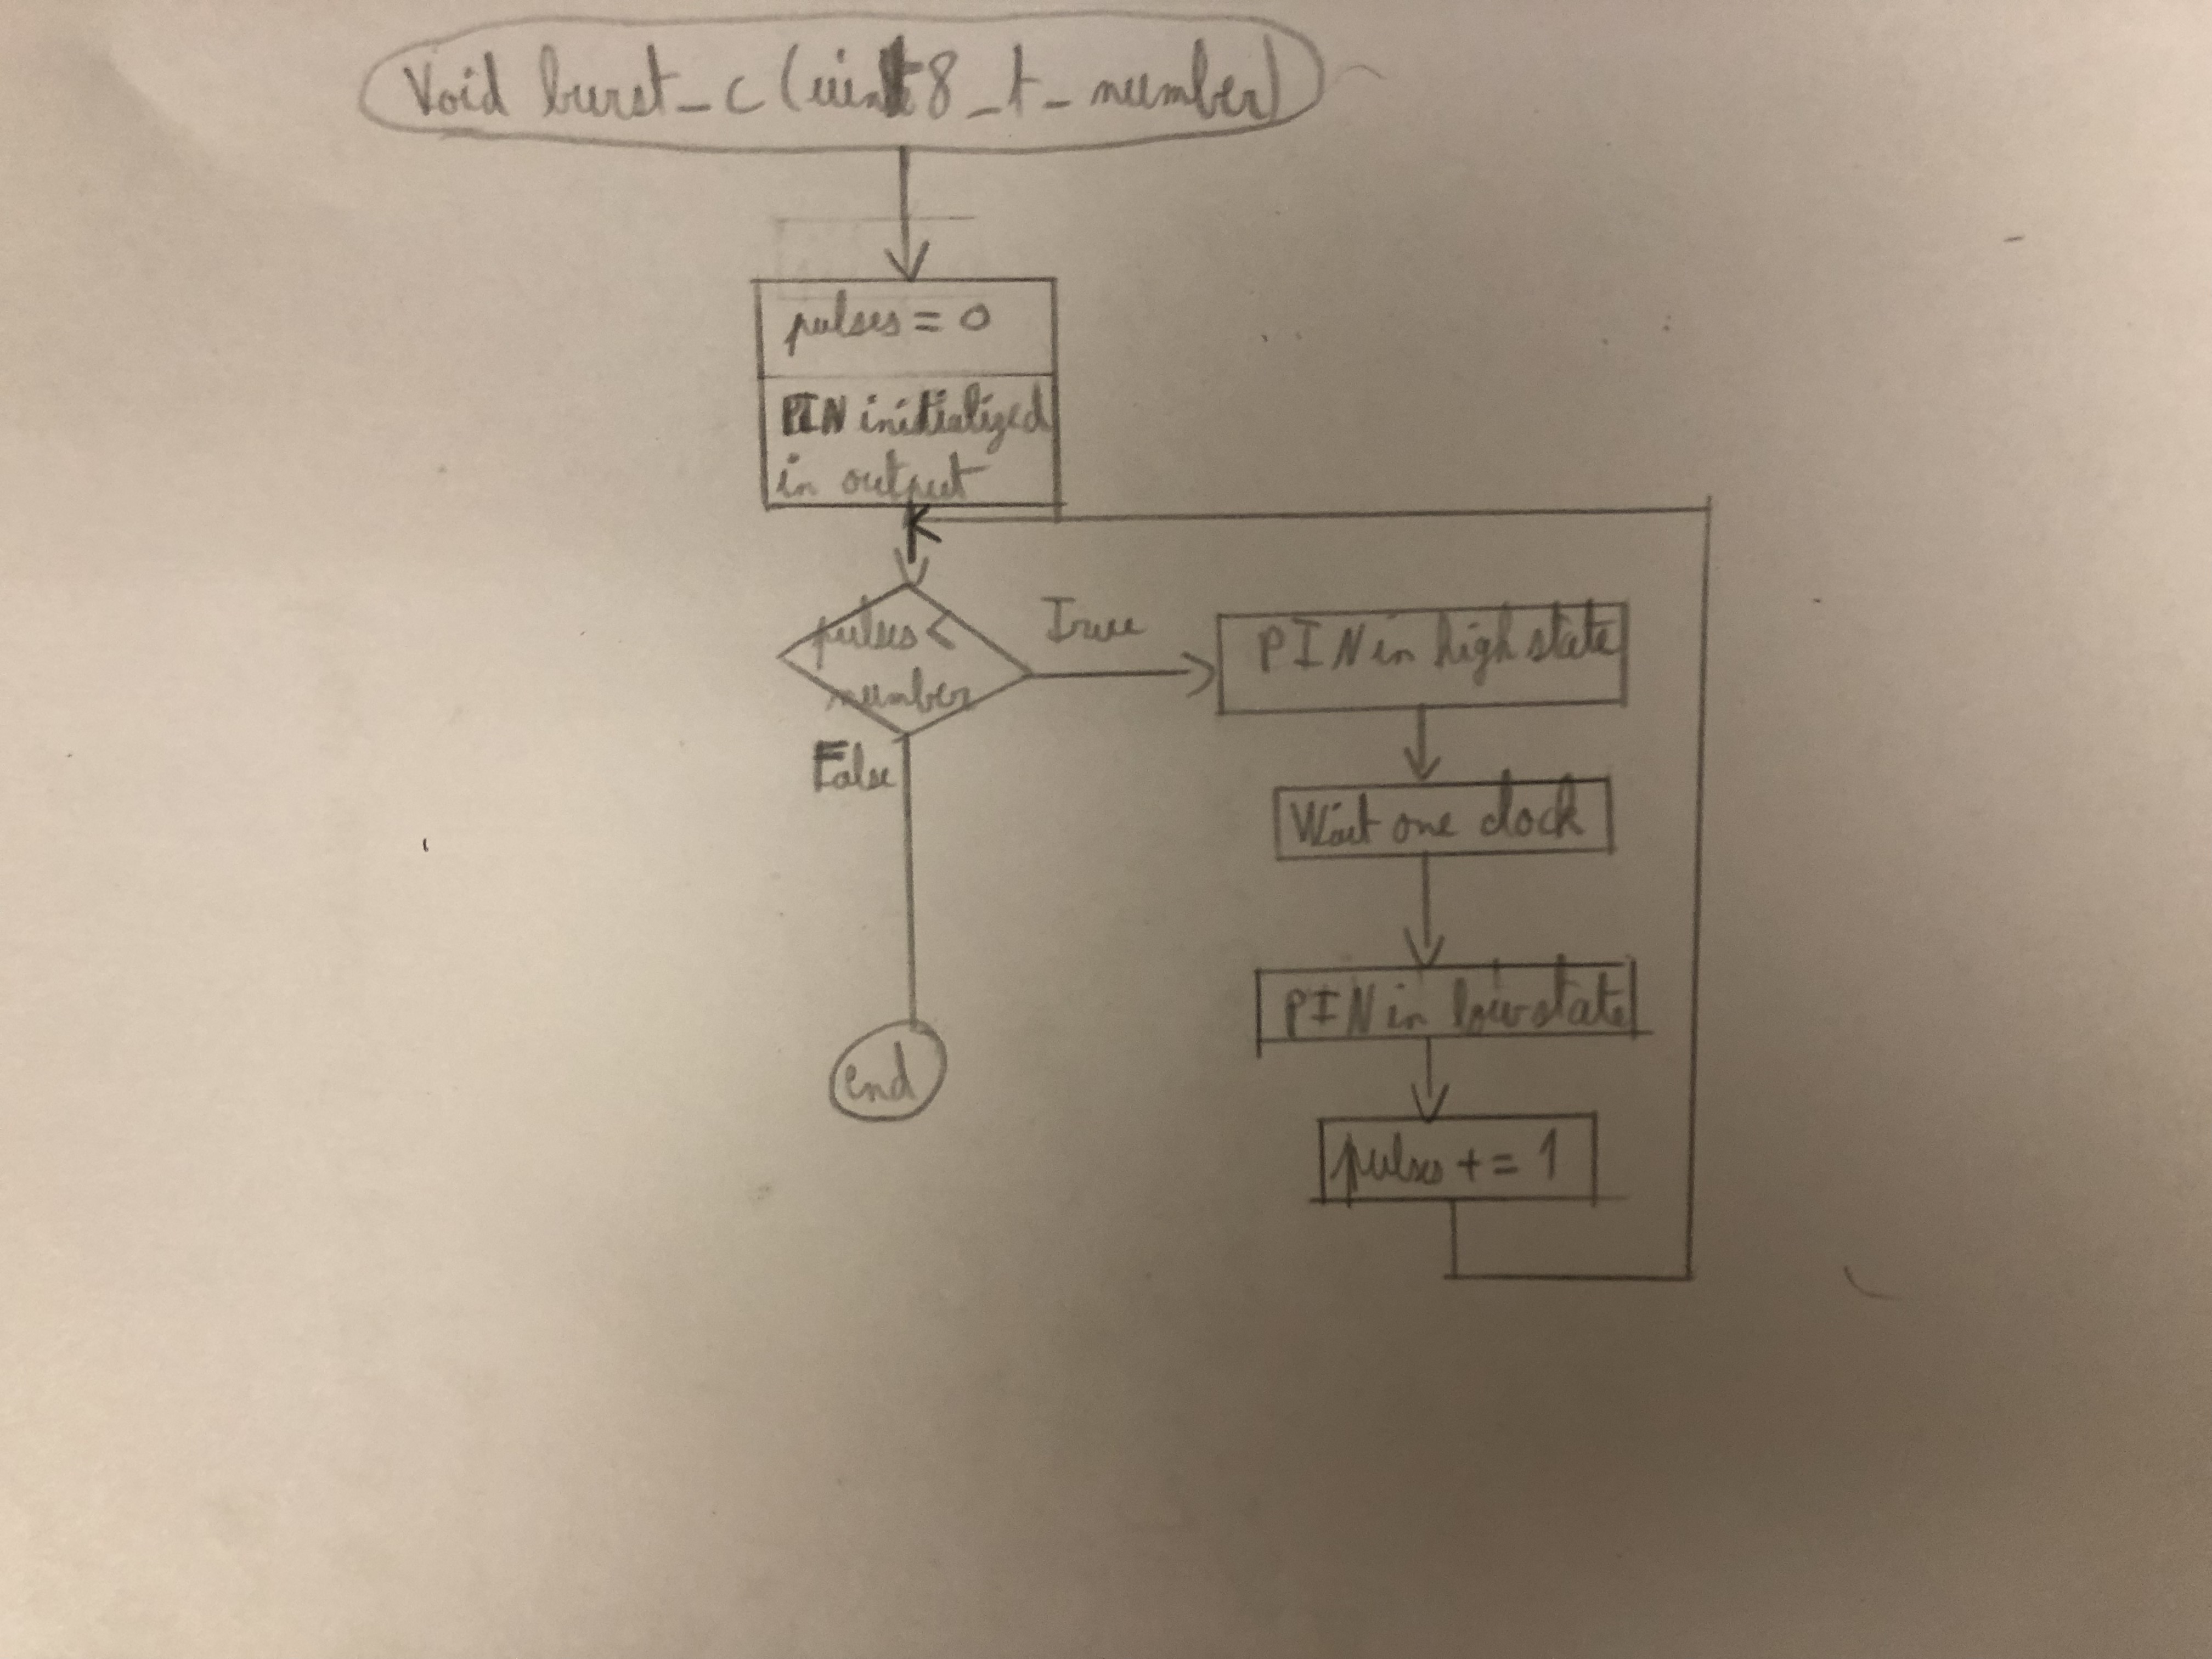 Void burst_c (uint8_t_number)
pulses = 0
PIN initialized
in output
pulses <
number
True
False
end
PIN in high state
Wait one clock
PIN in low state
pulses += 1